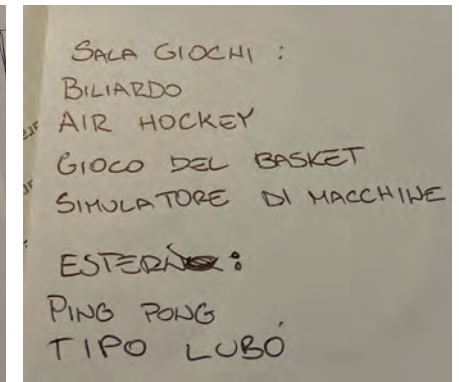 SALA GIOCHI :
BILIARDO
AIR HOCKEY
GIOCO DEL BASKET
SIMULATORE DI MACCHINE
ESTERN :
PING PONG
TIPO LUBÒ